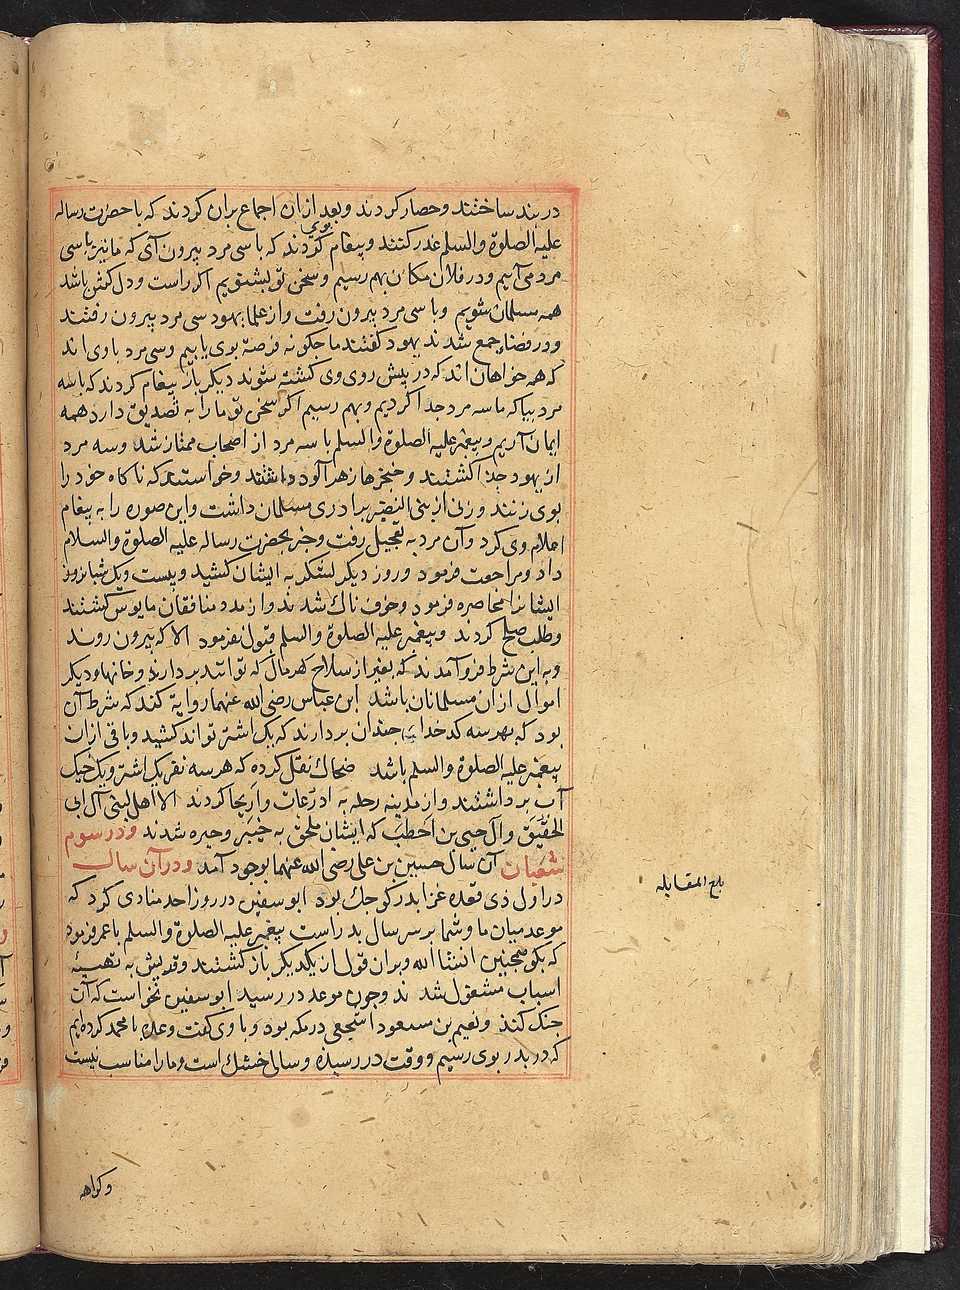 دربند ساختند و حصار کردند و بعد از ان اجماع بران کردند که با حضرت رساله
علیه الصلوة والسلم غدر کنند و پیغام بوی کردند که با سی مرد بیرون آی که ما نیز با سی
مرد می آییم و در فلان مکان بهم رسیم و سخن تو بشنویم اکر راست و دل کش باشد
همه مسلمان شویم و با سی مرد بیرون رفت و از علما یهود سی مرد بیرون رفتند
و در فضاء جمع شدند یهود کفتند ما جکونه فرصة بوی یابیم و سی مرد با وی اند
که همه خواهان اند که در پیش روی وی کشته شوند دیکر باز پیغام کردند که با سه
مرد بیا که ما سه مرد جدا کردیم و بهم رسیم اکر سخن تو ما را به تصدیق دارد همه
ایمان آریم و پیغمبر علیه الصلوة والسلم با سه مرد از اصحاب ممتاز شد و سه مرد
از یهود جدا کشتند و خنجرها زهر آلود داشتند و خواستند که ناکاه خود را
بوی زنند و زنی از بنی النضیر برادری مسلمان داشت و این صوره را به پیغام
اعلام وی کرد و آن مرد به تعجیل رفت و خبر بحضرت رساله علیه الصلوة والسلام
داد و مراجعت فرمود و روز دیکر لشکر به ایشان کشید و بیست و یک شبانروز
ایشان را محاصره فرمود و خوف ناک شدند و از مدد منافقان مایوس کشتند
و طلب صلح کردند و پیغمبر علیه الصلوة والسلم قبول نفرمود الا که بیرون روند
و به این شرط فرو آمدند که بغیر از سلاح هر مال که توانند بردارند و خانها و دیکر
اموال از ان مسلمانان باشد ابن عباس رضی الله عنهما روایة کند که شرط آن
بود که بهر سه کدخدای جندان بردارند که یک اشتر تواند کشید و باقی از ان
پیغمبر علیه الصلوة والسلم باشد ضحاک نقل کرده که هر سه نفر یک اشتر و یک خیک
آب برداشتند و از مدینه رحله به ادرعات و اریحا کردند الا اهل بیتی آل ابی
الحقیق و آل حیی بن اخطب که ایشان ملحق به خیبر و حیره شدند و در سوم
شعبان آن سال حسین بن علی رضی الله عنهما بوجود آمد و در آن سال
در اول ذی قعده غزا بدر کوجک بود ابو سفین در روز احد منادی کرد که
موعد میان ما و شما بر سر سال بدر است پیغمبر علیه الصلوة والسلم با عمر فرمود
که بکو همجنین انشا الله و بران قول از یکدیکر باز کشتند و قریش به تهییه
اسباب مشغول شدند و جون موعد در رسید ابو سفین نخواست که آن
جنک کند و نعیم بن مسعود اشجعی در مکه بود و با وی کفت وعده با محمد کرده ایم
که در بدر بوی رسیم و وقت در رسیده و سالی خشک است و ما را مناسب نیست
بلغ المقابله
و کراهه